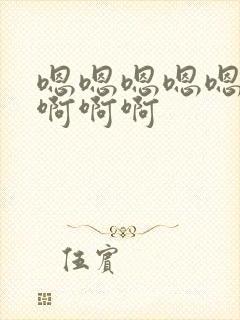 嗯嗯嗯嗯嗯
啊啊啊
伍宾